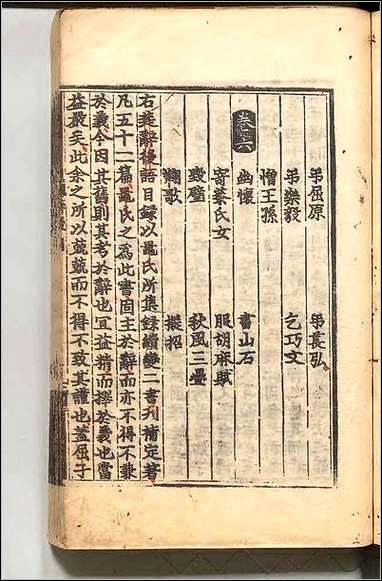 弔屈原 弔萇弘
弔樂毅 乞巧文
憎王孫
卷六
幽懷 書山石
寄蔡氏女 服胡麻賦
毀璧 秋風三疊
鞠歌 擬招
右楚辭後語目録以鼂氏所集録續變二書刋補定著
凡五十二篇鼂氏之為此書固主於辭而亦不得不兼
於義今因其舊則其考於辭也宜益精而擇於義也當
益嚴矣此余之所以兢兢而不得不致其謹也蓋屈子